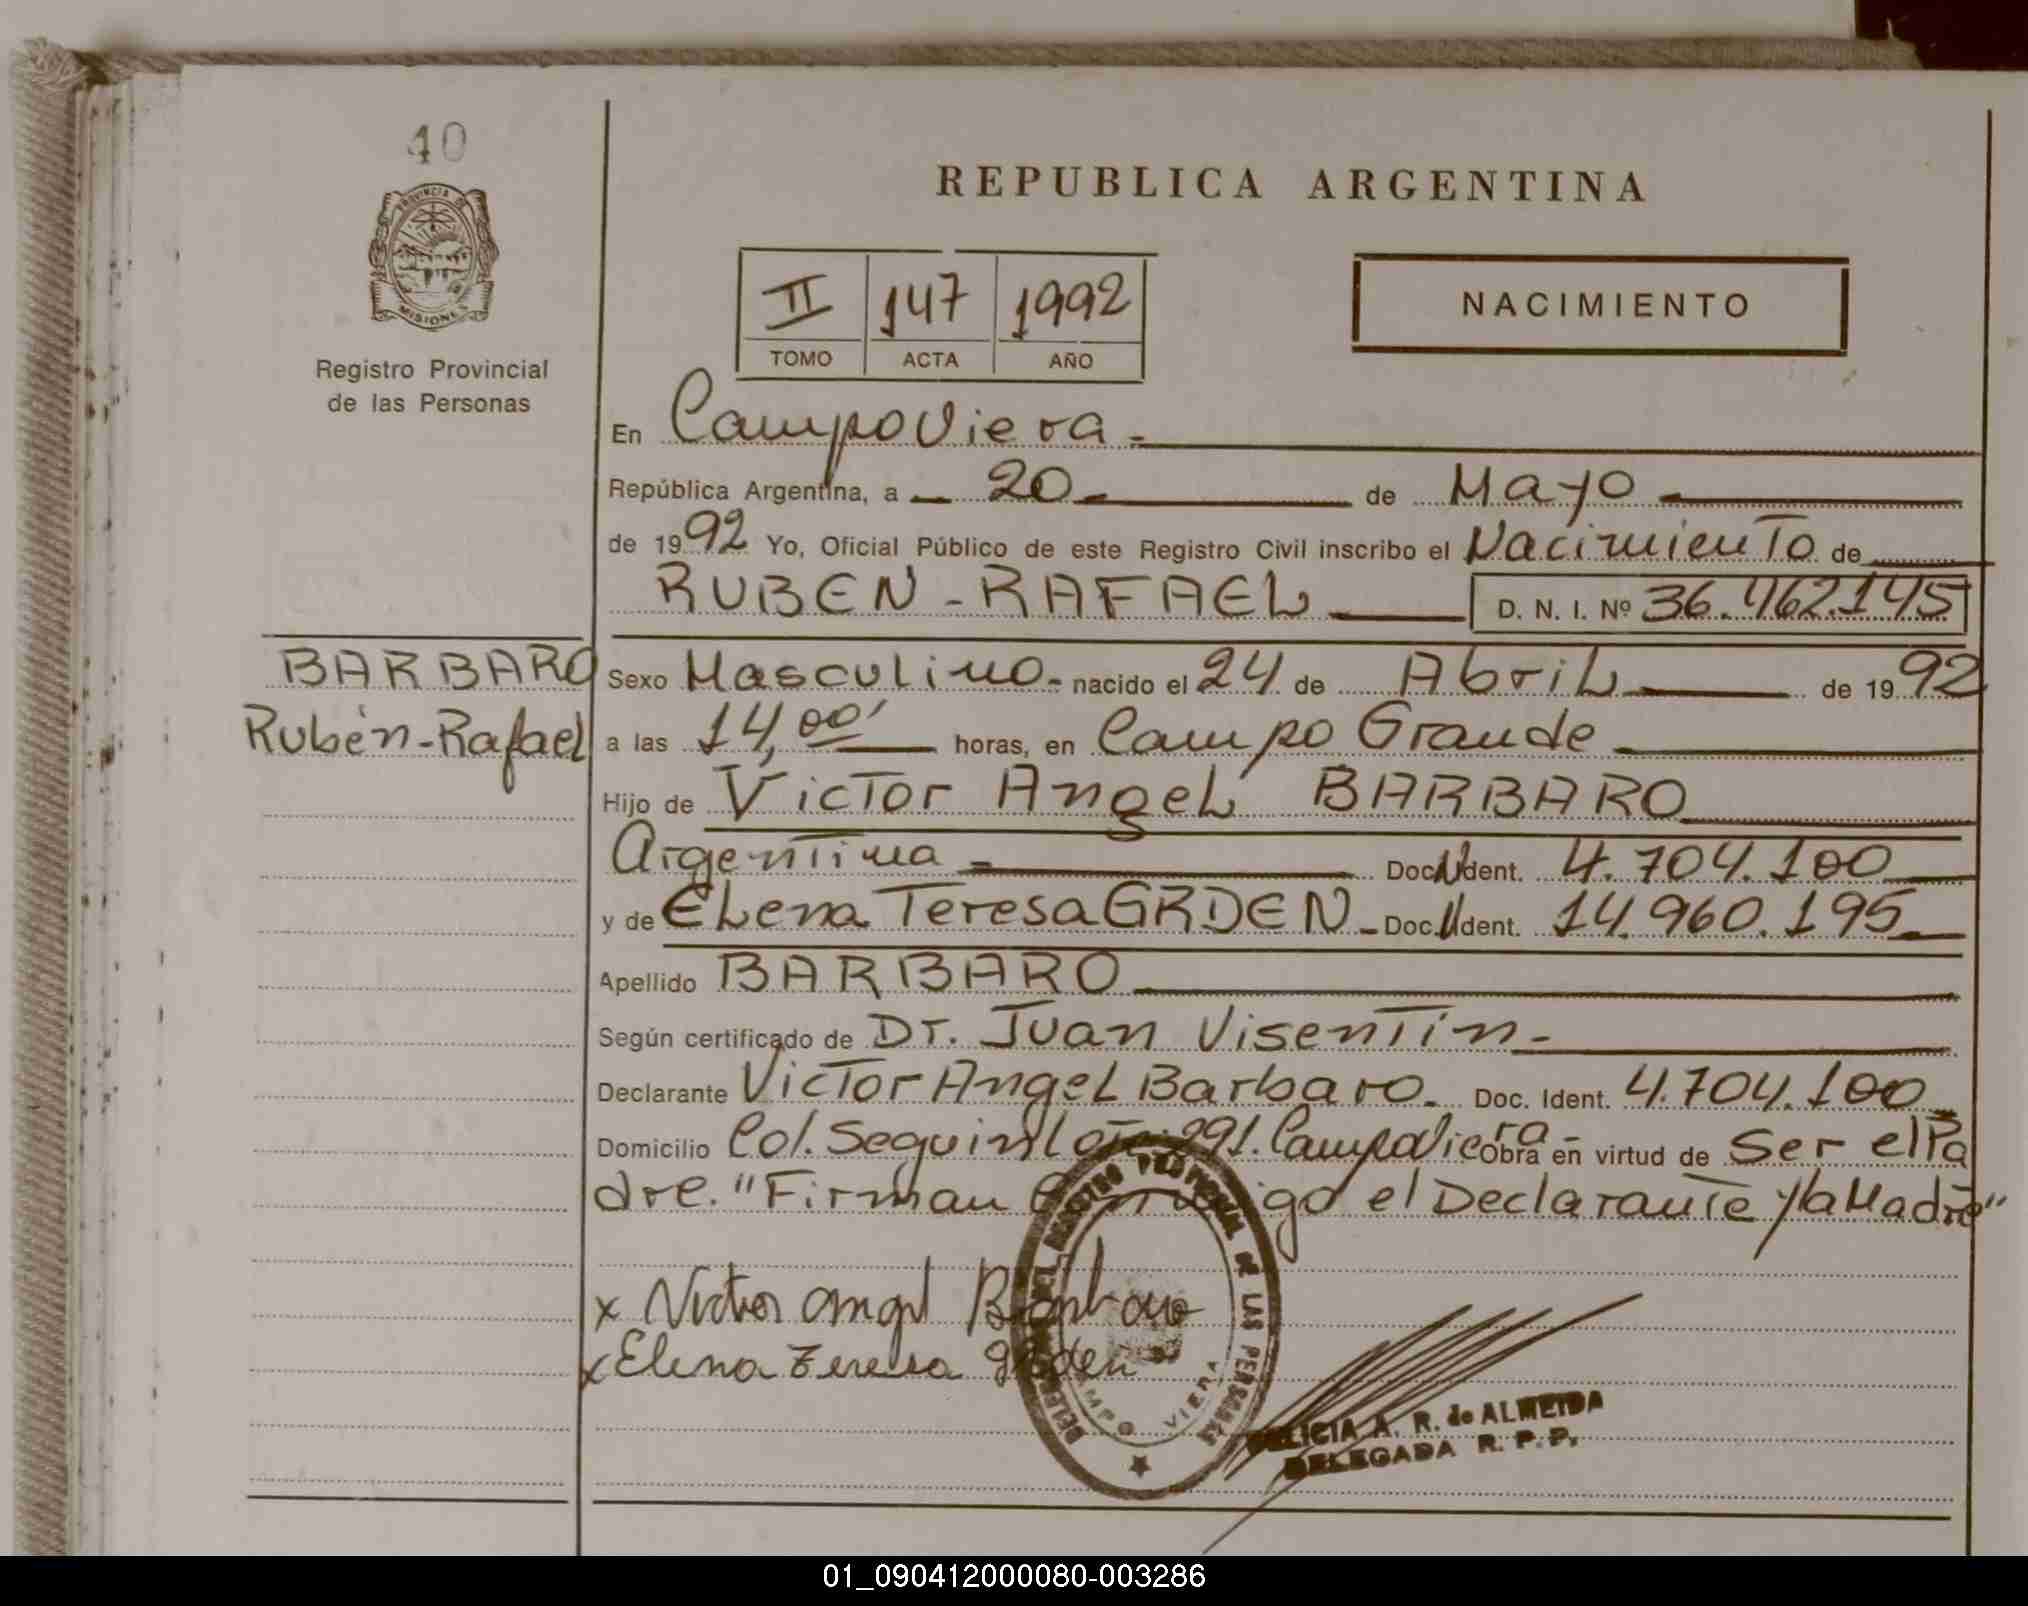 40
PROVINCIA DE
MISIONES
Registro Provincial
de las Personas
REPUBLICA ARGENTINA
II 147 1992
TOMO ACTA AÑO
NACIMIENTO
En Campo Viera -
República Argentina, a - 20 - de Mayo -
de 1992 Yo, Oficial Público de este Registro Civil inscribo el Nacimiento de
RUBEN - RAFAEL D. N. I. Nº 36.462.145
BARBARO
Rubén - Rafael
Sexo Masculino - nacido el 24 de Abril de 1992
a las 14,00' horas, en Campo Grande
Hijo de Victor Angel BARBARO
Argentina - Doc. N Ident. 4.704.100
y de Elena Teresa GRDEN - Doc. N Ident. 14.960.195
Apellido BARBARO
Según certificado de Dr. Juan Visentin -
Declarante Victor Angel Barbaro. Doc. Ident. 4.704.100
Domicilio Col. Seguin Lote: 291. Campo Viera - Obra en virtud de Ser el Pa
dre. "Firman Conmigo el Declarante y la Madre"
x Victor Angel Barbaro
x Elena Teresa Grden
DELEGACION DEL REGISTRO PROVINCIAL DE LAS PERSONAS
CAMPO VIERA
FELICIA A. R. de ALMEIDA
DELEGADA R. P. P.
01_090412000080-003286